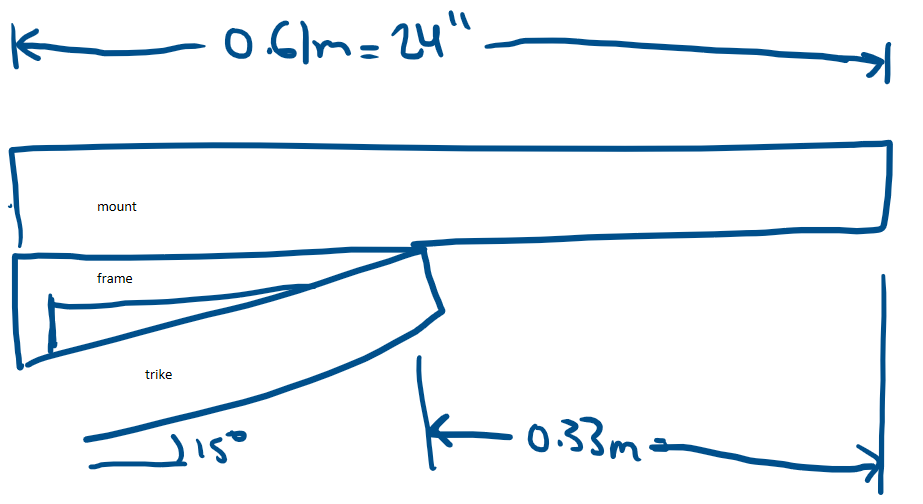 0.61m = 24"
mount
frame
trike
15°
0.33m =